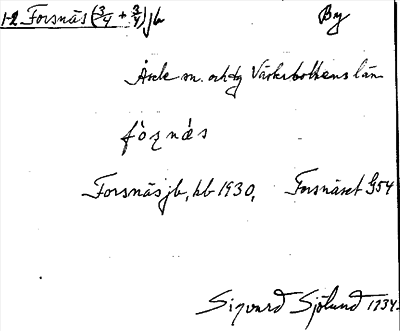 1-2 Forsnäs (3/4 + 3/4) jb By
Åsele sn. o. hdg Västerbottens län
fòṣnǽs
Forsnäs jb, kb 1930, Forsnäset G54
Sigvard Sjölund 1934.